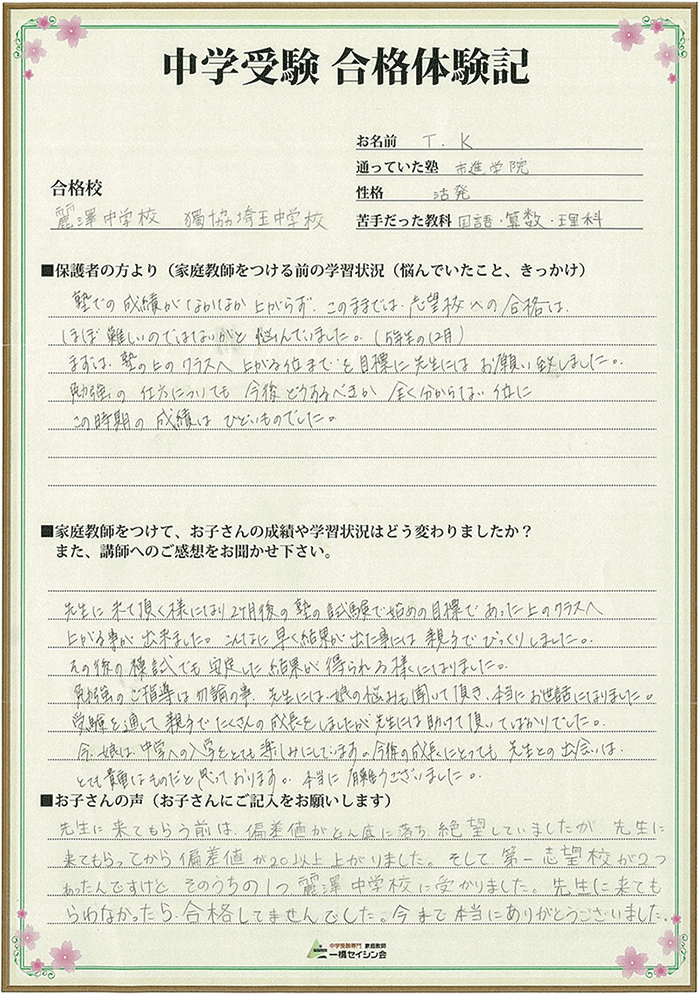 中学受験 合格体験記
お名前 T. K
通っていた塾 市進学院
性格 活発
苦手だった教科 国語・算数・理科
合格校
麗澤中学校 獨協埼玉中学校
■保護者の方より（家庭教師をつける前の学習状況（悩んでいたこと、きっかけ）
塾での成績がなかなか上がらず、このままでは、志望校への合格は、
ほぼ難しいのではないかと悩んでいました。（5年生の12月）
まずは、塾の上のクラスへ上がる位までと目標に先生にはお願い致しました。
勉強の仕方についても今後どうするべきか全く分からない位に
この時期の成績はひどいものでした。
■家庭教師をつけて、お子さんの成績や学習状況はどう変わりましたか？
また、講師へのご感想をお聞かせ下さい。
先生に来て頂く様になり2ヶ月後の塾の試験で始めの目標であった上のクラスへ
上がる事が出来ました。こんなに早く結果が出た事には親子でびっくりしました。
その後の模試でも安定した結果が得られる様になりました。
勉強のご指導は勿論の事、先生には娘の悩みも聞いて頂き、本当にお世話になりました。
受験を通して親子でたくさんの成長をしましたが先生には助けて頂いてばかりでした。
今、娘は、中学への入学をとても楽しみにしています。今後の成長にとっても先生との出会いは、
とても貴重なものだと思っております。本当に有難うございました。
■お子さんの声（お子さんにご記入をお願いします）
先生に来てもらう前は、偏差値がどん底に落ち、絶望していましたが、先生に
来てもらってから偏差値が20以上上がりました。そして、第一志望校が2つ
あったんですけど、そのうちの1つ麗澤中学校に受かりました。先生に来ても
らわなかったら、合格してませんでした。今まで本当にありがとうございました。
中学受験専門 家庭教師
一橋セイシン会